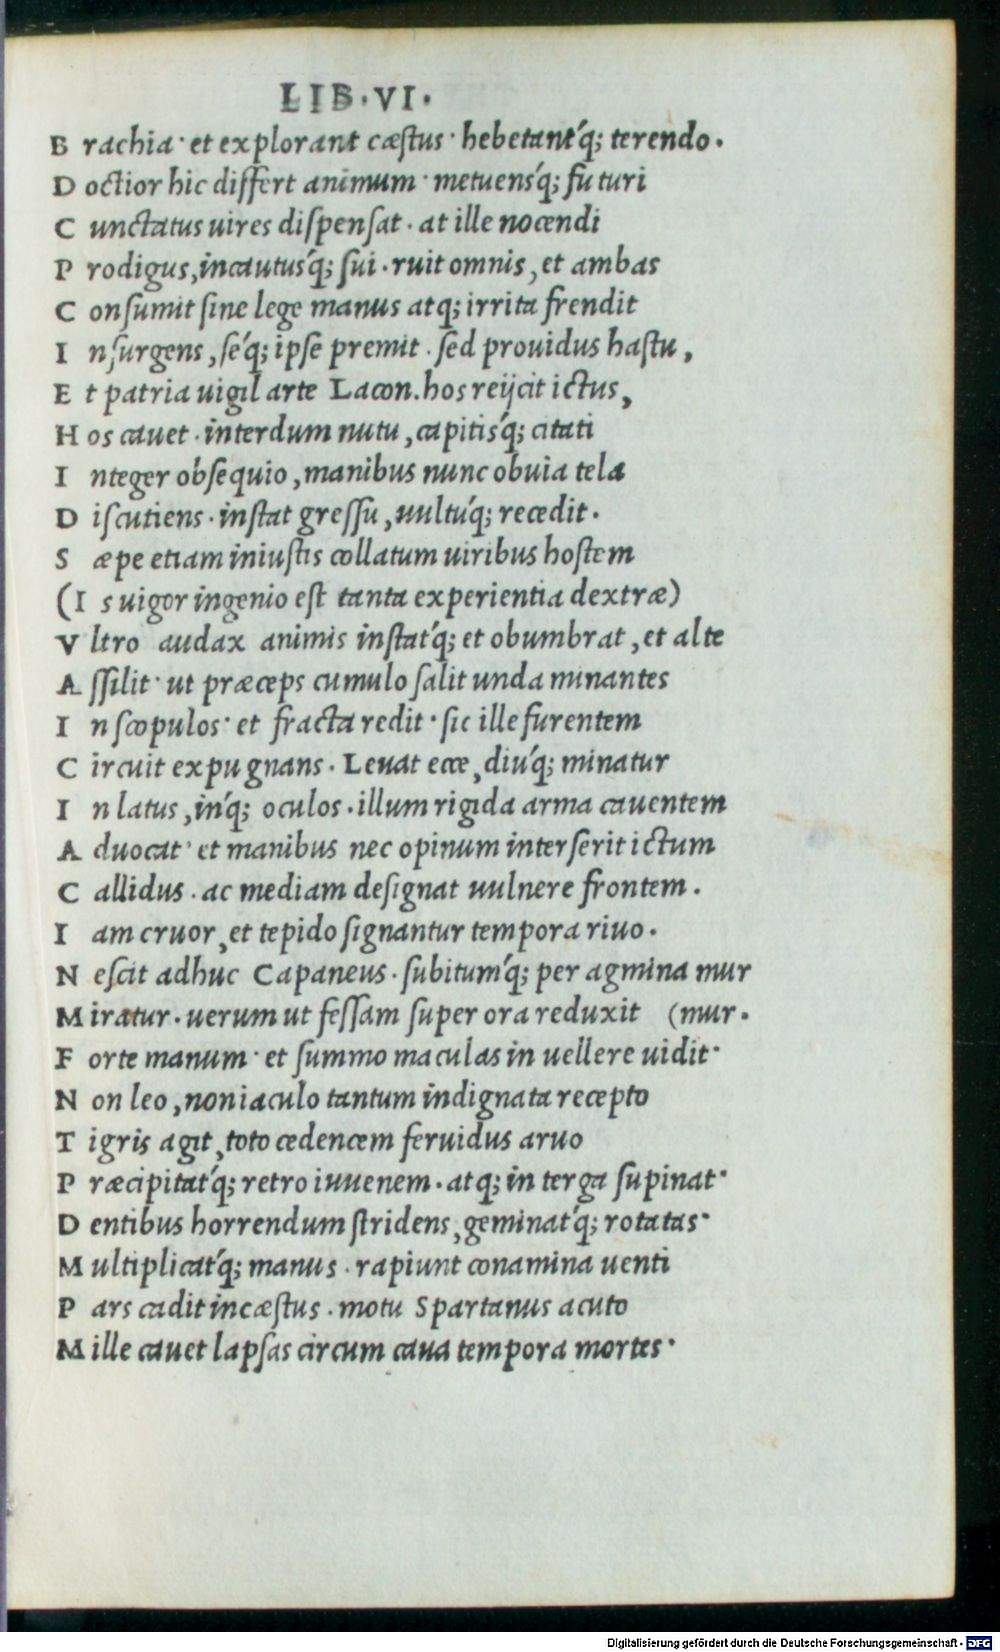 LIB·VI·
B rachia· et explorant cæstus· hebetant'q; terendo.
D octior hic differt animum· metuens'q; futuri
C unctatus uires dispensat· at ille nocendi
P rodigus, incautus'q; sui· ruit omnis, et ambas
C onsumit sine lege manus atq; irrita frendit
I nsurgens, sé'q; ipse premit. sed prouidus hastu,
E t patria uigil arte Lacon. hos reijcit ictus,
H os cauet· interdum nutu, capitis'q; citati
I nteger obsequio, manibus nunc obuia tela
D iscutiens· instat gressu, uultu'q; recedit.
S æpe etiam iniustis collatum uiribus hostem
(I s uigor ingenio est tanta experientia dextræ)
V ltro audax animis instat'q; et obumbrat, et alte
A ssilit· ut præceps cumulo salit unda minantes
I n scopulos· et fracta redit· sic ille furentem
C ircuit expugnans· Leuat ecce, diu'q; minatur
I n latus, in'q; oculos· illum rigida arma cauentem
A duocat· et manibus nec opinum interserit ictum
C allidus. ac mediam designat uulnere frontem.
I am cruor, et tepido signantur tempora riuo.
N escit adhuc Capaneus· subitum'q; per agmina mur
M iratur· uerum ut fessam super ora reduxit (mur.
F orte manum· et summo maculas in uellere uidit·
N on leo, non iaculo tantum indignata recepto
T igris agit, toto cedencem feruidus aruo
P ræcipitat'q; retro iuuenem. atq; in terga supinat·
D entibus horrendum stridens, geminat'q; rotatas·
M ultiplicat'q; manus· rapiunt conamina uenti
P ars cadit in cæstus. motu Spartanus acuto
M ille cauet lapsas circum caua tempora mortes·
Digitalisierung gefördert durch die Deutsche Forschungsgemeinschaft - DFG